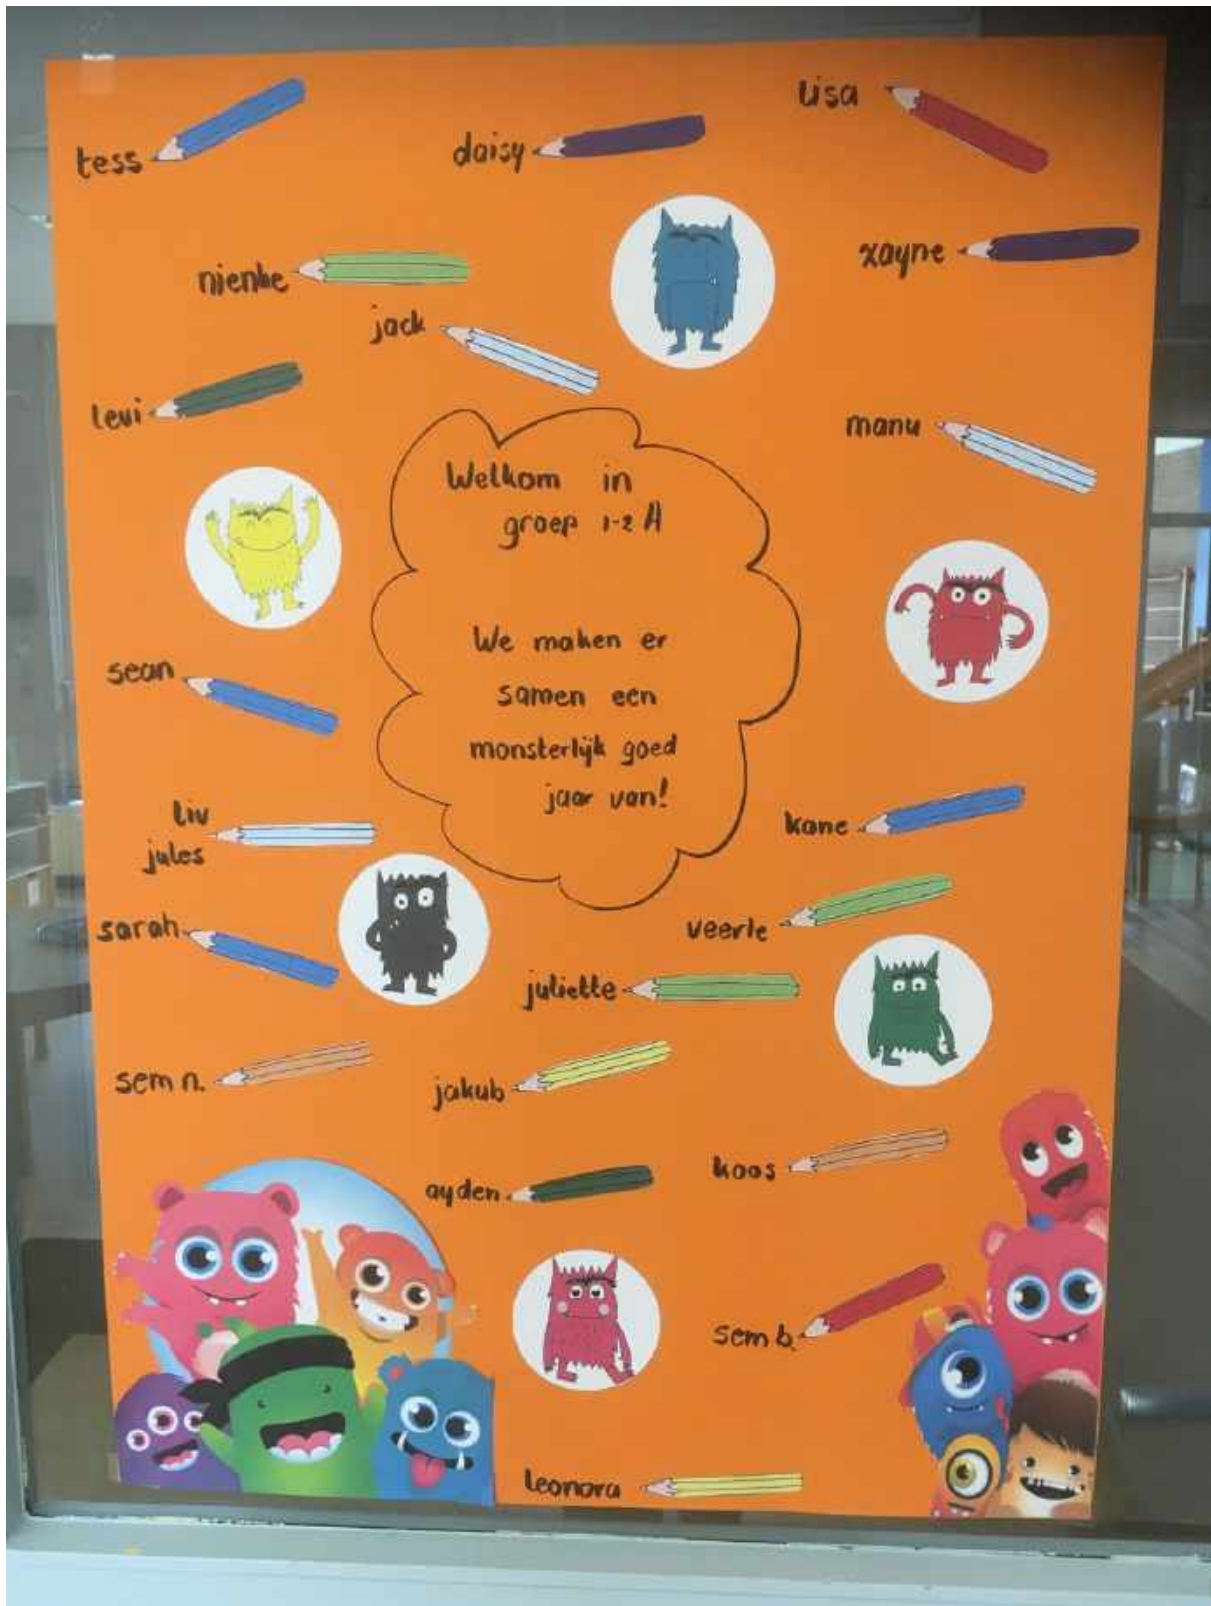 lisa
tess
daisy
xayne
nienke
jack
levi
manu
Welkom in
groep 1-2 A
We maken er
samen een
monsterlijk goed
jaar van!
sean
liv
jules
kane
sarah
veerle
juliette
sem n.
jakub
koos
ayden
sem b.
leonora